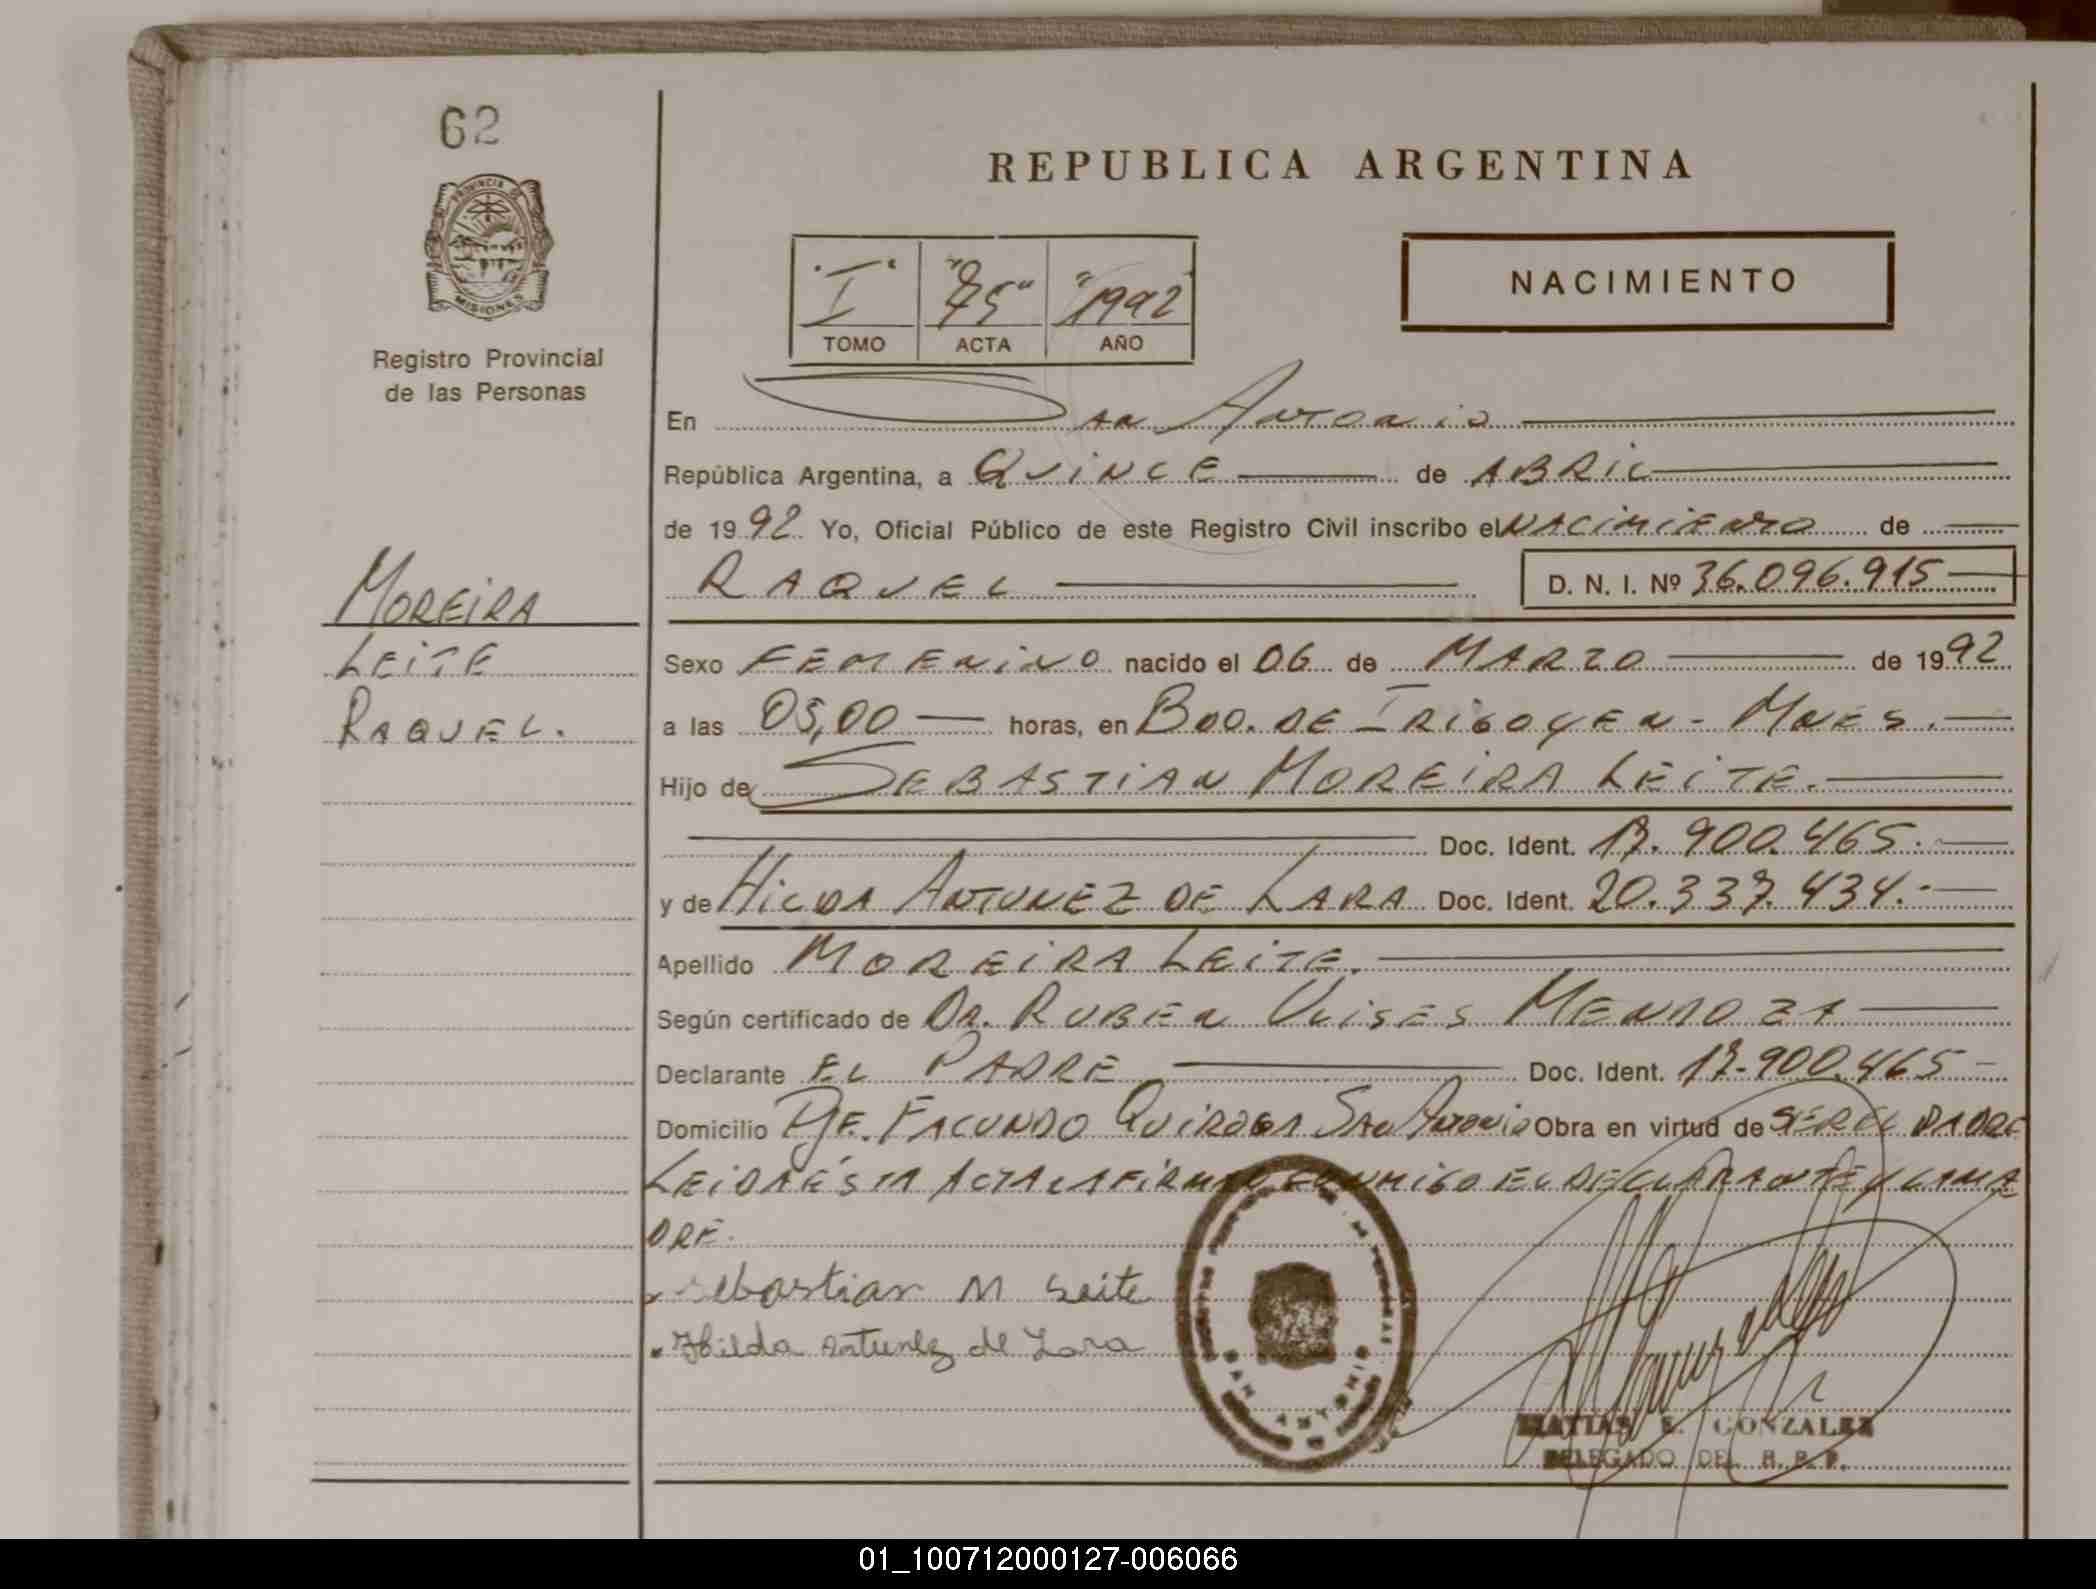 62
PROVINCIA DE
MISIONES
Registro Provincial
de las Personas
MOREIRA
LEITE
RAQUEL.
REPUBLICA ARGENTINA
"I" "75" "1992"
TOMO ACTA AÑO
NACIMIENTO
En San Antonio
República Argentina, a QUINCE de ABRIL
de 1992 Yo, Oficial Público de este Registro Civil inscribo el NACIMIENTO de
RAQUEL D. N. I. Nº 36.096.915
Sexo FEMENINO nacido el 06 de MARZO de 1992
a las 05,00 horas, en BDO. DE IRIGOYEN - MNES.
Hijo de SEBASTIAN MOREIRA LEITE.
Doc. Ident. 17.900.465.
y de HILDA ANTUNEZ DE LARA Doc. Ident. 20.337.434.
Apellido MOREIRA LEITE.
Según certificado de DR. RUBEN ULISES MENDOZA
Declarante EL PADRE Doc. Ident. 17.900.465
Domicilio PJE. FACUNDO QUIROGA SAN ANTONIO Obra en virtud de SER EL PADRE
LEIDA ÉSTA ACTA LA FIRMAN CONMIGO EL DECLARANTE Y LA MA
DRE.
Sebastian M Leite
Hilda Antunez de Lara
SAN ANTONIO
MATIAS E. GONZALEZ
DELEGADO DEL R. P. P.
01_100712000127-006066